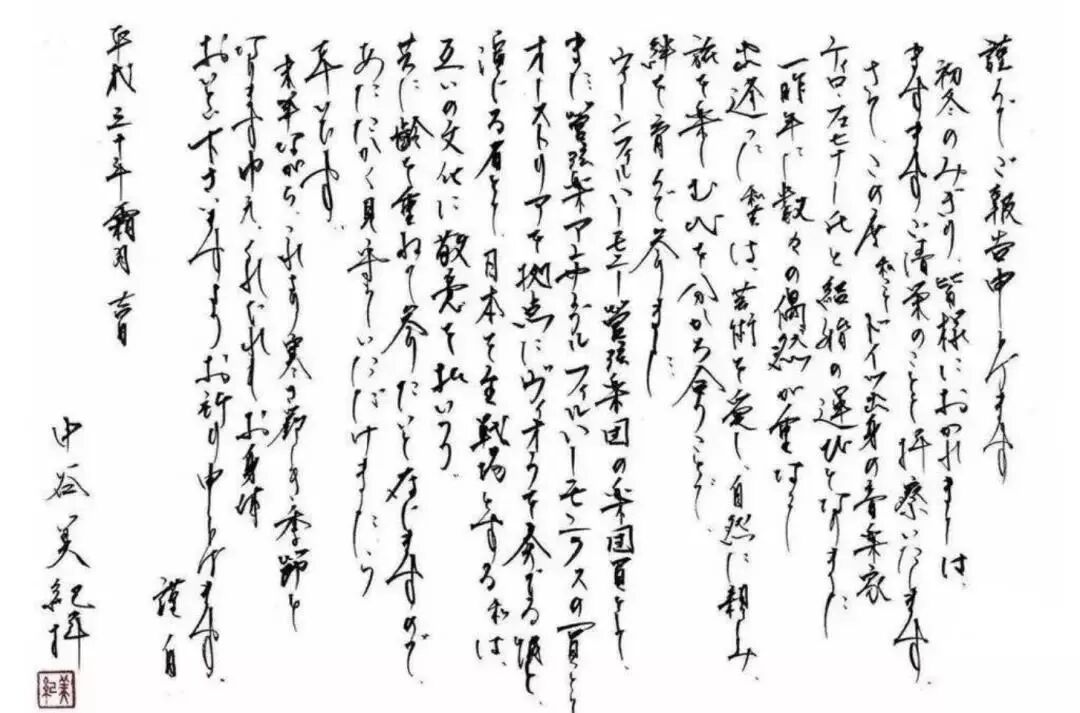 謹んでご報告申し上げます
初冬のみぎり、皆様におかれましては、
ますますご清栄のことと拝察いたします。
さて、この度、私ことドイツ出身の音楽家
ティロ・フェヒナー氏と結婚の運びとなりました
一昨年に数々の偶然が重なって
出逢った私共は、芸術を愛し、自然に親しみ
旅を楽しむひとときを分かち合うことで、
絆を育んで参りました。
ウィーンフィルハーモニー管弦楽団の楽団員として、
また管弦楽アンサンブルフィルハーモニクスの一員として
オーストリアを拠点にヴィオラを奏でる彼と、
演じる者として、日本を主戦場とする私は、
互いの文化に敬意を払いつつ、
共に齢を重ねて参りたいと存じますので、
あたたかく見守っていただけましたら
幸いです。
末筆ながら、これより寒さ厳しき季節と
なります由え、くれぐれもお身体
おいとい下さいますようお祈り申し上げます。
謹白
平成三十年霜月吉日
中谷美紀拝
美紀